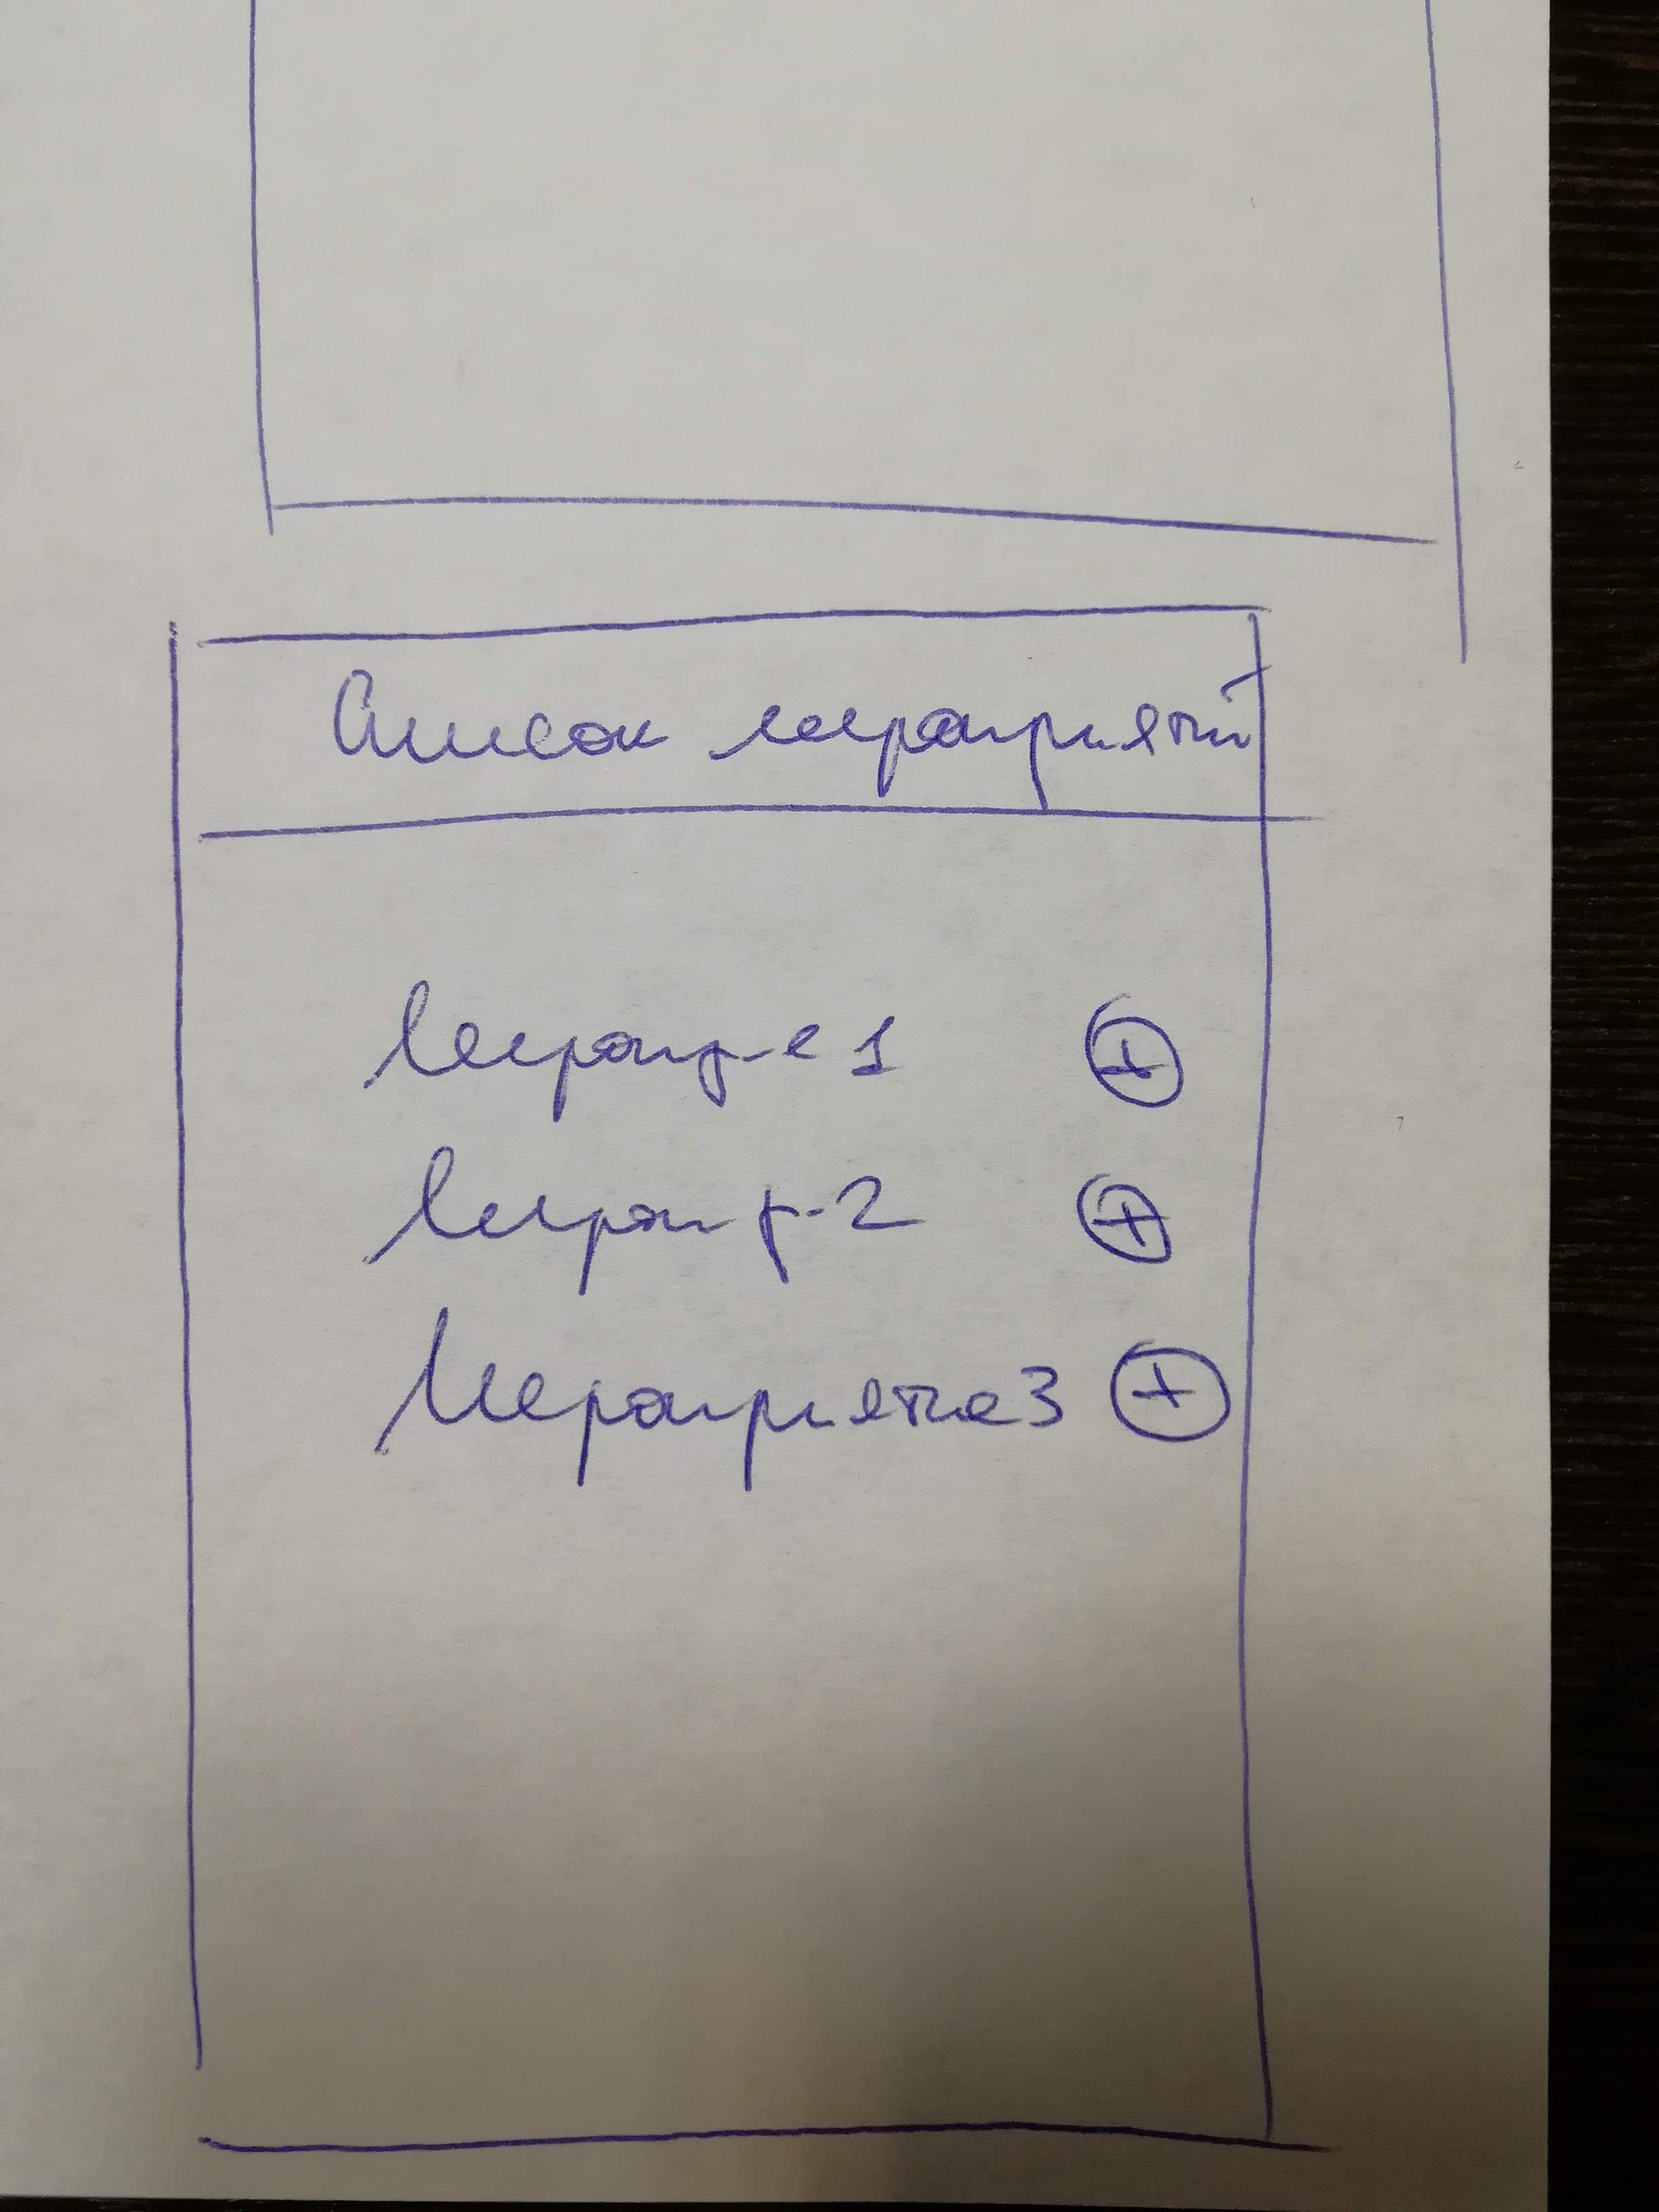 Список мероприятий
Меропр-е 1 +
Меропр-2 +
Мероприятие 3 +